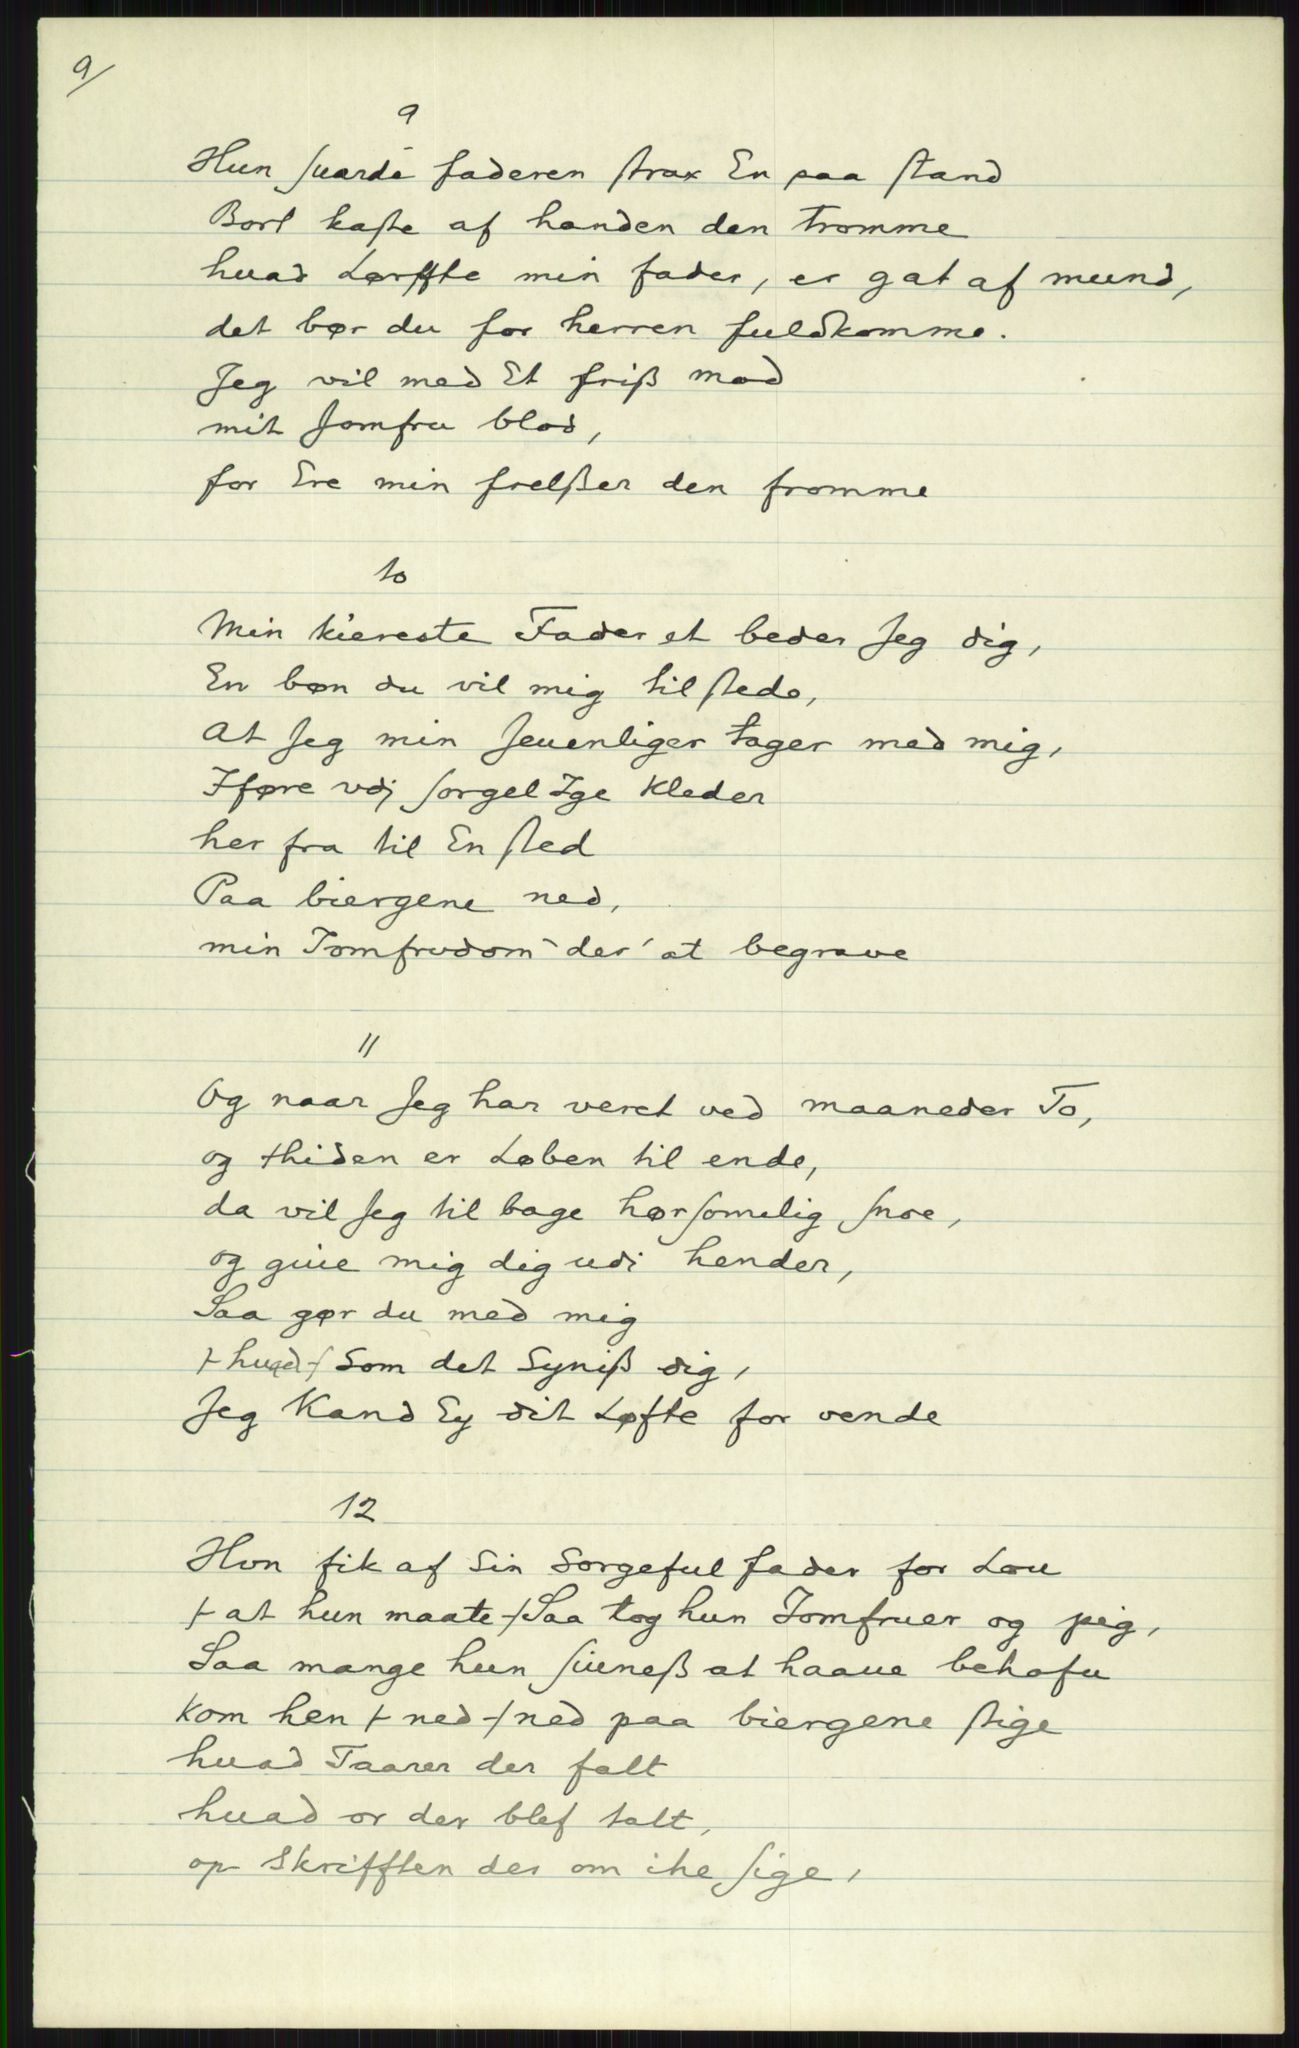 9/
9
Hun suarde faderen strax En paa stand
Bort kaste af handen den tromme
huad Lørffte min fader, er gat af mund,
det bør du for herren fuldkomme.
Jeg vil med Et friß mod
mit Jomfru blod,
for Ere min frelßer den fromme
10
Min kiereste Fader et beder Jeg dig,
En bøn du vil mig til stede,
At Jeg min Jeuenliger tager med mig,
Iføre vdj sorgel Ige Kleder
her fra til En sted
Paa biergene ned,
min Jomfrvdom der at begrave
11
Og naar Jeg har veret ved maaneder To,
og thiden er Løben til ende,
da vil Jeg til bage hørsomelig snoe,
og giue mig dig udi hender,
Saa gør du med mig
+ huad + Som det Syniß dig,
Jeg Kand Ey dit Løfte for vende
12
Hvn fik af Sin Sorgeful fader for Lou
+ at hun maate + Saa tog hun Jomfruer og pig,
Saa mange hun siuneß at haaue behofu
Kom hen + ned + ned paa biergene stige
huad Taarer der falt
huad or der blef talt,
op Skrifften der om ike sige,